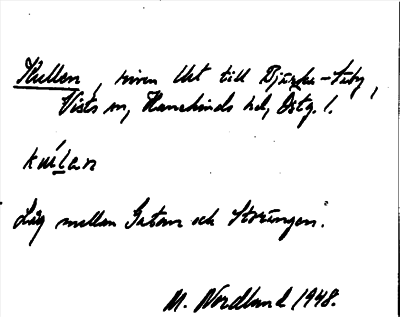 Kullen, riven lht till Bjärka-Säby,
Vists sn, Hanekinds hd, Östg. l.
kul̀an
Låg mellan Gatan och Storängen.
M. Nordlund 1948.